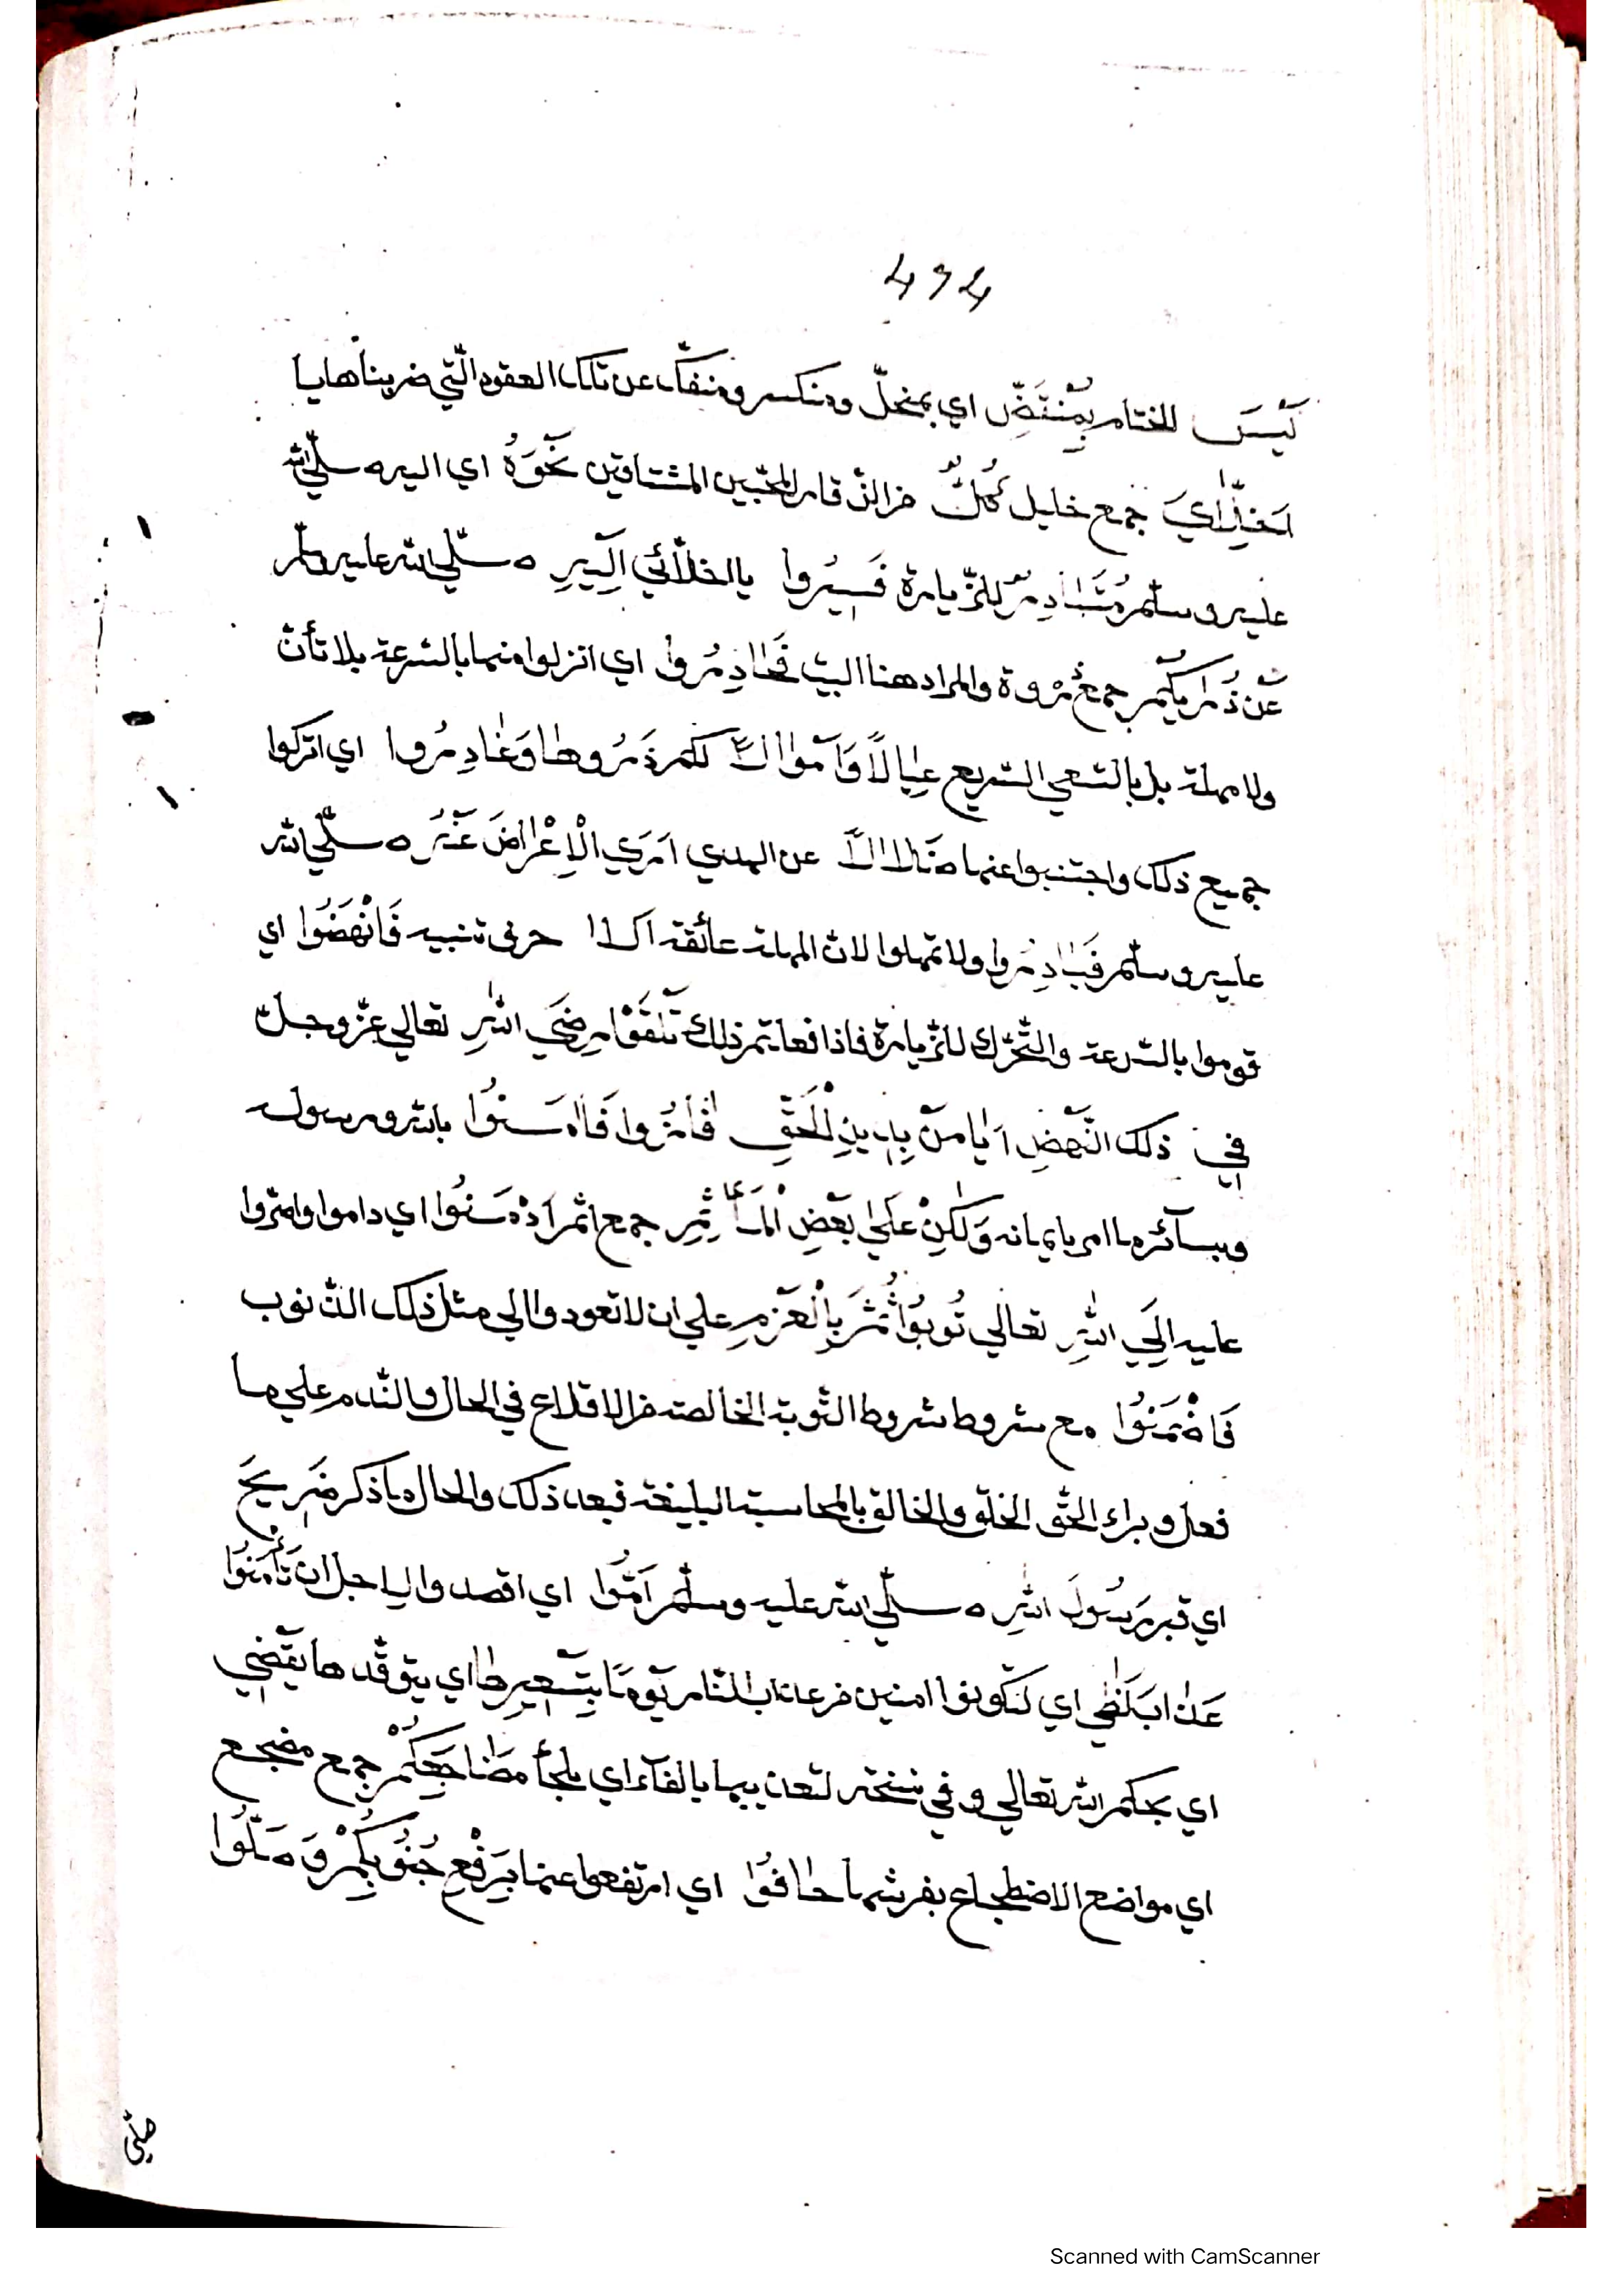 ٤٩٤
لَيْسَ للختام بِمُنْتَقِضٍ اي بمنحلّ ومنكسر ومنفكّ عن تلك العقود الّتي ضربناها يا
اَخِلّٰايَ جمع خليل كُلٌّ من الذّقام المحبّين المشتاقين نَحْوَهُ اي اليه صلّي الله
عليه وسلّم مُبَادِرٌ للزّيارة فَسِيْرُوا يا اخلّائي اِلَيْهِ صلّي الله عليه وسلّم
عَنْ ذُرَاكُمْ جمع ذروة والمراد هنا البيت فَحَادِرُوا اي انزلوا منها بالسّرعة بلا تأنّ
ولا مهلة بل بالسّعي السّريع عِيَالًا وَاَمْوَالًا لكم ذَرُوها وَغَادِرُوا اي اتركوا
جميع ذلك واجتنبوا عنها ضَلَالًا عن الهدي اَرَي الْاِعْرَاضَ عَنْهُ صلّي الله
عليه وسلّم فَبَادِرُوا ولا تمهلوا لانّ المهلة عائقة اَلَا حرف تنبيه فَانْهَضُوا اي
قوموا بالسّرعة والتّحرّك للزّيارة فاذا فعلتم ذلك تَلْقَوْا رِضَي اللهِ تعالي عزّ وجلّ
فِي ذلك النَّهْضِ اَيَا مَنْ بِدِينِ الْحَقِّ فَازُوا فَاٰمَنُوا بالله ورسوله
وبسآئر ما امر بايمانه وَلٰكِنْ عَلٰي بَعْضِ الْمَآثِمِ جمع اثم اَدْمَنُوا اي داموا واصرّوا
عليه اِلَي اللهِ تعالي تُوبُوا ثُمَّ بِالْعَزْمِ علي ان لا تعودوا الي مثل ذلك الذّنوب
فَاضْمَنُوا مع شروط شروط التّوبة الخالصة من الاقلاع في الحال والنّدم علي ما
فعل وبراء الحقّ الخلق والخالق بالمحاسبة البليغة فبعد ذلك والحال ما ذكر ضَرِيحَ
اي قبر رَسُولِ اللهِ صلّي الله عليه وسلّم اُمُّوا اي اقصدوا لاجل ان تَأْمَنُوا
عَذَابَ لَظٰي اي لتكونوا امنين من عذاب النّار يَوْمًا بِتَسْعِيرِها اي بتوقّدها يَقْضِي
اي يحكم الله تعالي وفي نسخة لتعذيبها بالفآء اي يلجأ مَضَاجِعَكُمْ جمع مضجع
اي مواضع الاضطجاع بفرشها جَافُوا اي ارتفعوا عنها بِرَفْعِ جُنُوبِكُمْ وَصَلُّوا
صلّي
Scanned with CamScanner